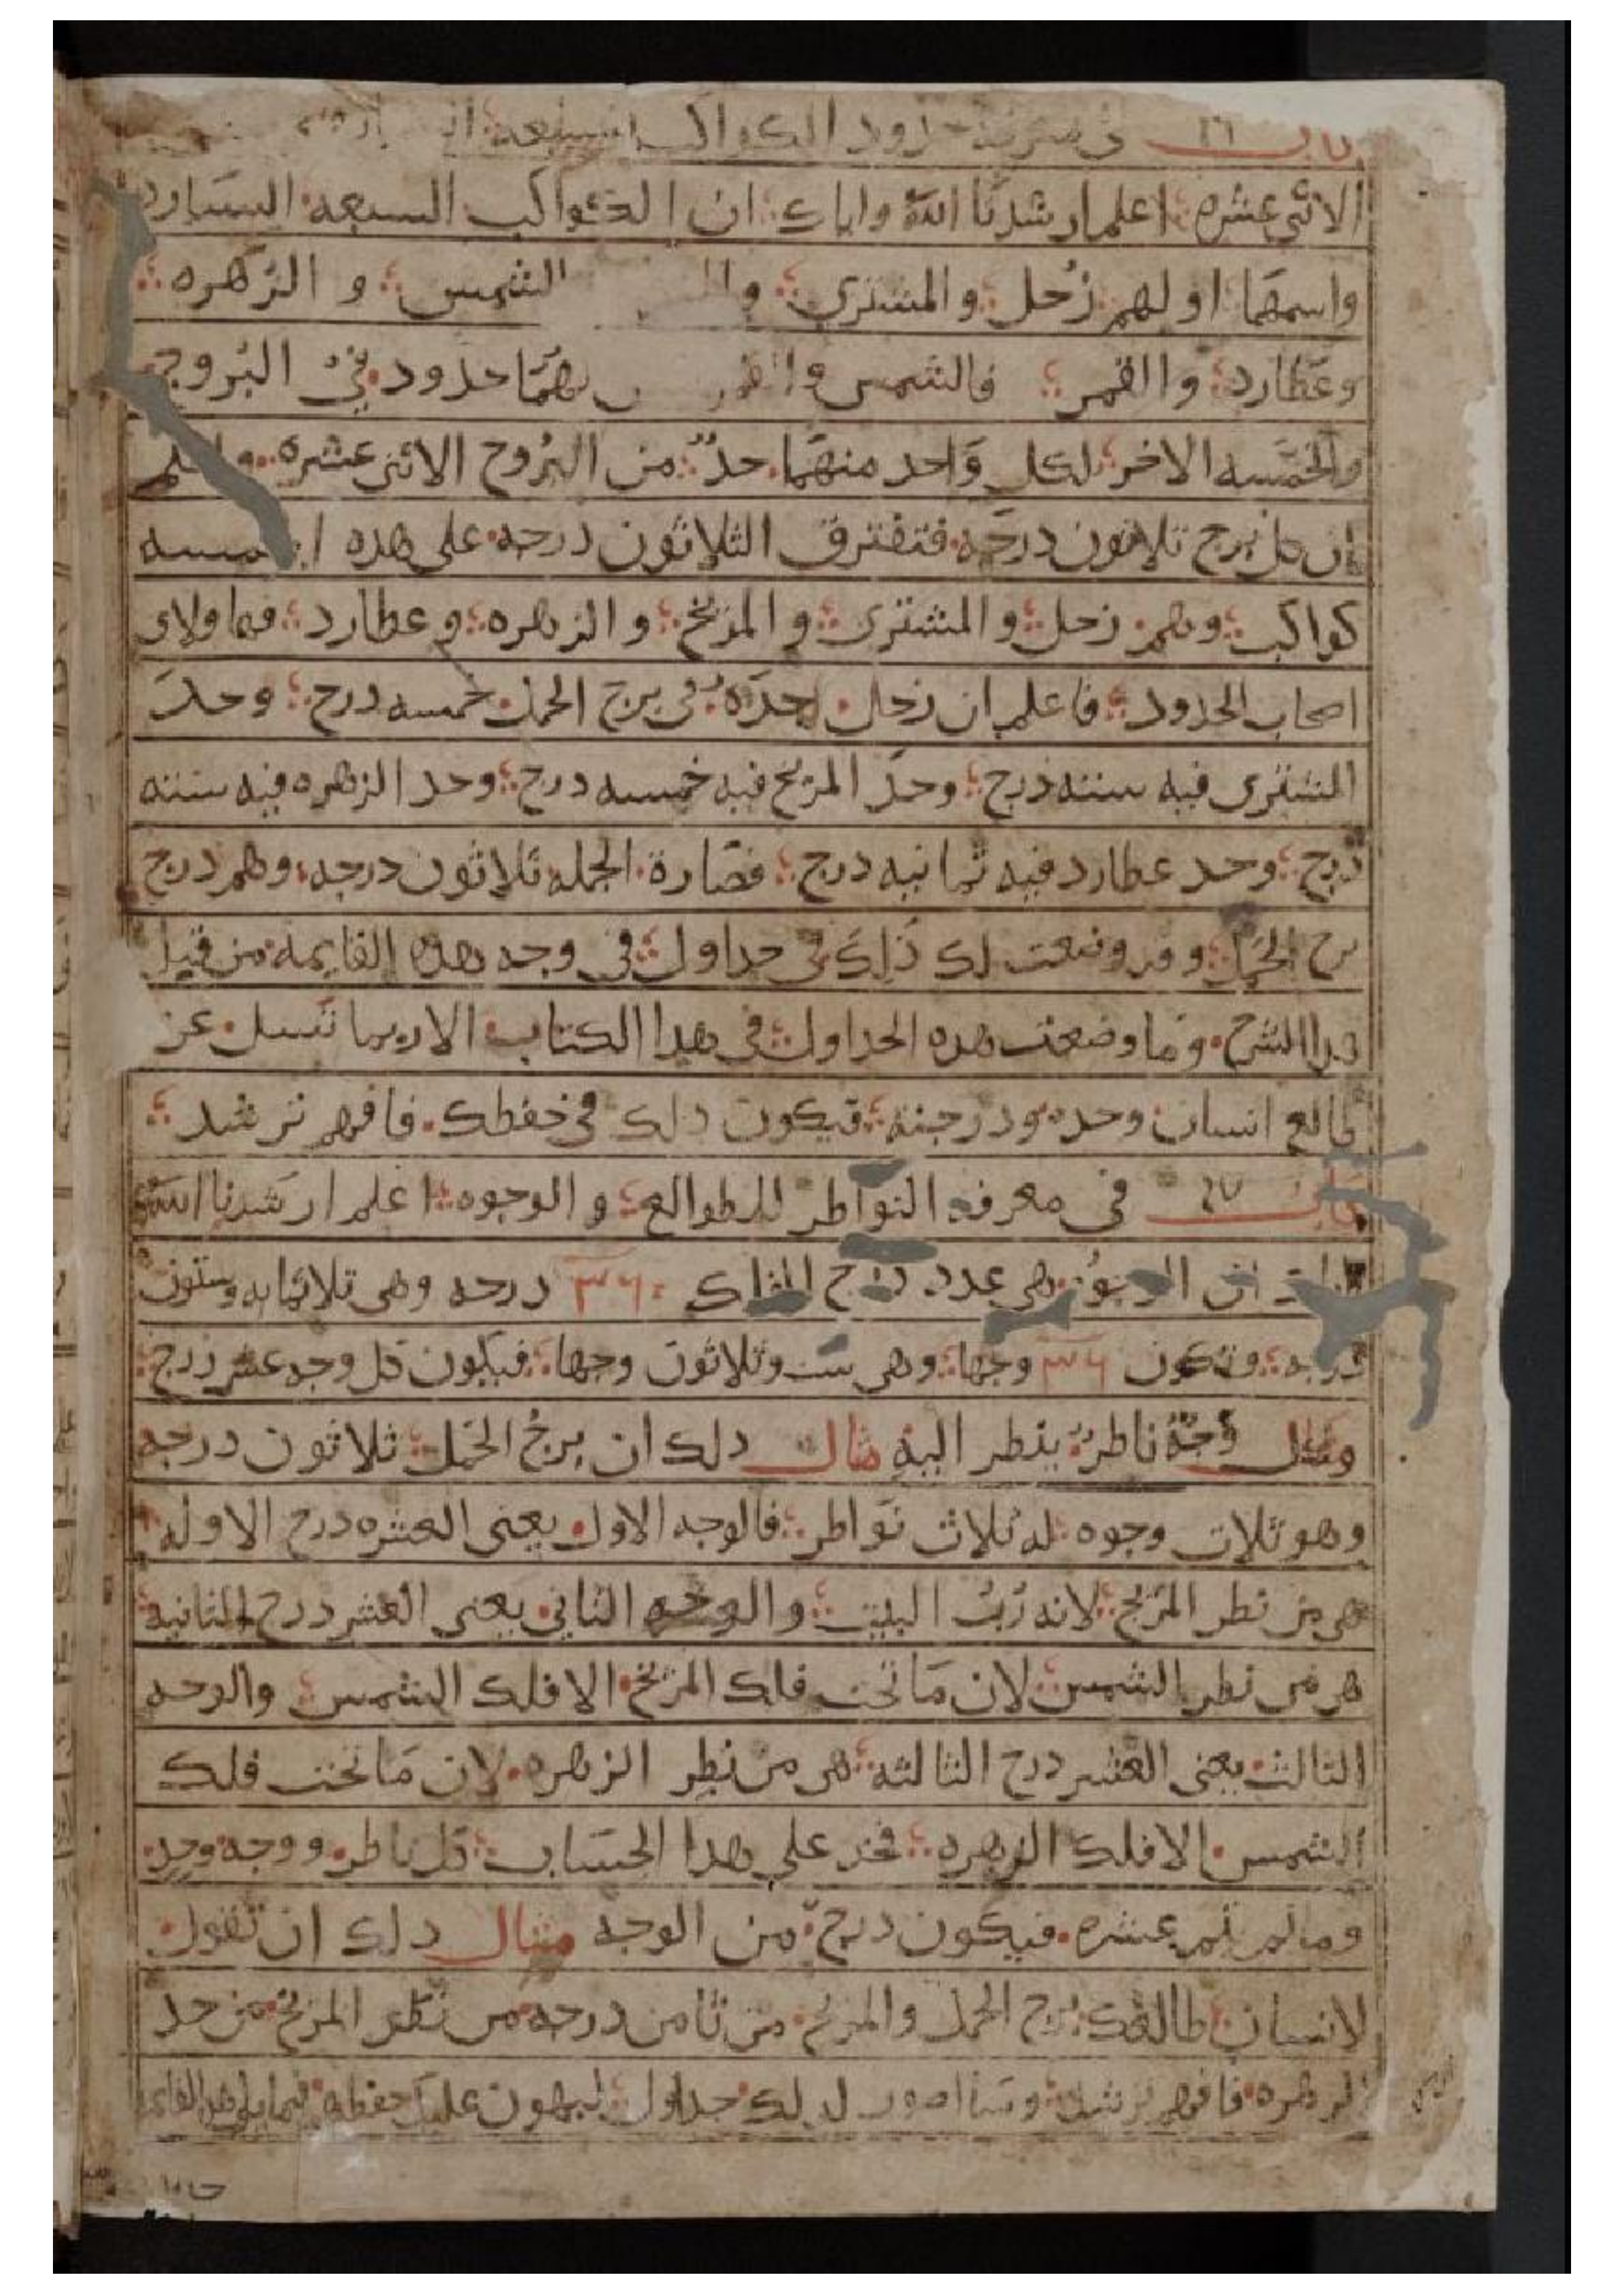 باب ٢٦ في معرفة حدود الكواكب السبعه
الاثنى عشره اعلم ارشدنا الله واياك ان الكواكب السبعه السياره
واسمهما اولهم زحل والمشترى الشمس و الزهره
وعطارد والقمر فالشمس والقمر لهما حدود في البروج
والخمسه الاخر لكل واحد منهما حد من البروج الاثنى عشره واعلم
ان كل برج ثلاثون درجه فتفترق الثلاثون درجه على هذه الخمسه
كواكب وهم زحل والمشترى والمريخ والزهره وعطارد فهاولاى
اصحاب الحدود فاعلم ان زحل حده في برج الحمل خمسه درج وحد
المشترى فيه سته درج وحد المريخ فيه خمسه درج وحد الزهره فيه سته
درج وحد عطارد فيه ثمانيه درج فصارة الجمله ثلاثون درجه وهم درج
برج الحمل وقد وضعت لك ذلك في جداول في وجه هذه القايمه من قبل
هدا الشرح وما وضعت هده الجداول في هدا الكتاب الا ربما تسل عن
طالع انسان وحده ودرجته فيكون دلك في حفظك فافهم ترشد
باب ٢٧ في معرفة النواظر للطوالع والوجوه اعلم ارشدنا الله
ان الوجوه هي عدد درج الفلك ٣٦٠ درجه وهي ثلاثمايه وستون
درجه وتكون ٣٦ وجها وهي ست وثلاثون وجها فيكون كل وجه عشر درج
ولكل وجه ناظر ينظر اليه مثال دلك ان برج الحمل ثلاثون درجه
وهو ثلاث وجوه له ثلاث نواظر فالوجه الاول يعنى العشره درج الاوله
هي من نظر المريخ لانه رب البيت والوجه الثاني يعنى العشر درج الثانيه
هي من نظر الشمس لان ما تحت فلك المريخ الا فلك الشمس والوجه
الثالث يعنى العشر درج الثالثه هي من نظر الزهره لان ما تحت فلك
الشمس الا فلك الزهره فخذ على هدا الحساب كل ناظر ووجه وحد
وما لم تلم عشره فيكون درج من الوجه مثال دلك ان تقول
لانسان طالعك برج الحمل والمريخ من ثامن درجه من نظر المريخ من حد
الزهره فافهم ترشد وسااصور لدلك جداول ليهون عليك حفظه فيما يلي هده القايمه